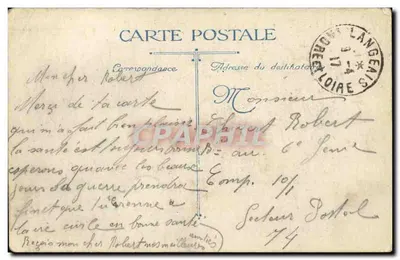 CARTE POSTALE
Correspondance
Adresse du destinataire
LANGEAIS
INDRE & LOIRE
Mon cher Robert
Merci de ta carte
qui m'a fait bien plaisir
la santé est toujours bonne
esperons qu'avec les beaux
jours la guerre prendra
fin et que
en bonne santé
Reçois mon cher Robert mes meilleures
amitiés
Monsieur
Robert
au 6e Génie
Comp. 10/1
Secteur Postal
74
CARTE-PARAPHILA